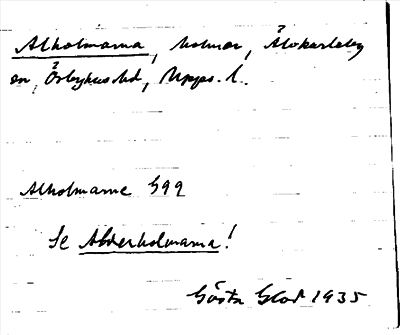 Alholmarna, holmar, Älvkarleby
sn, Örbyhus hd, Upps. l.
Alholmarne G99
Se Alderholmarna!
Gösta 1935